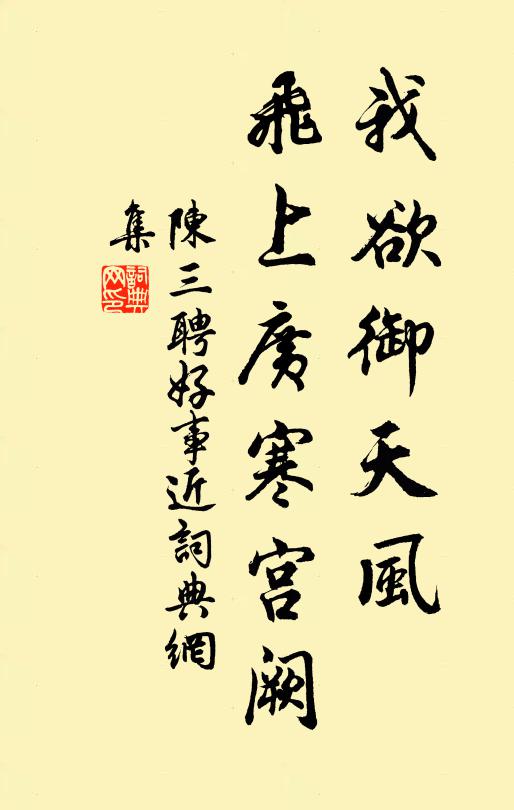 我欲御天風
飛上廣寒宮闕
陳三聘好事近詞典網
集
詞典
网印